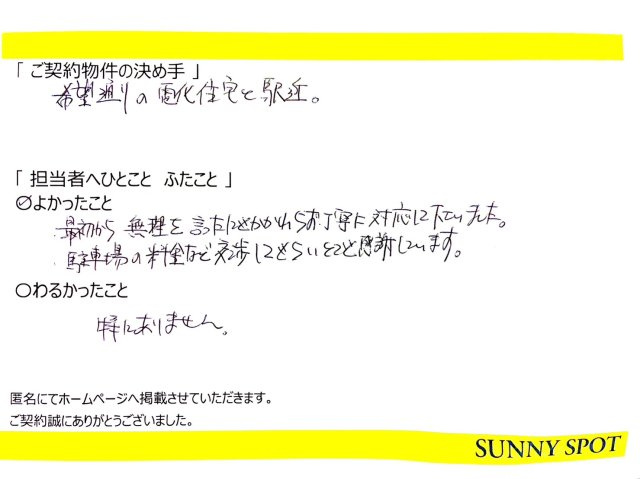 「 ご契約物件の決め手 」
希望通りの電化住宅と駅近。
「 担当者へひとこと ふたこと 」
○よかったこと
最初から無理を言ったにもかかわらずお丁寧に対応して下さいました。
駐車場の料金など交渉してもらいとても感謝しています。
○わるかったこと
特にありません。
匿名にてホームページへ掲載させていただきます。
ご契約誠にありがとうございました。
SUNNY SPOT